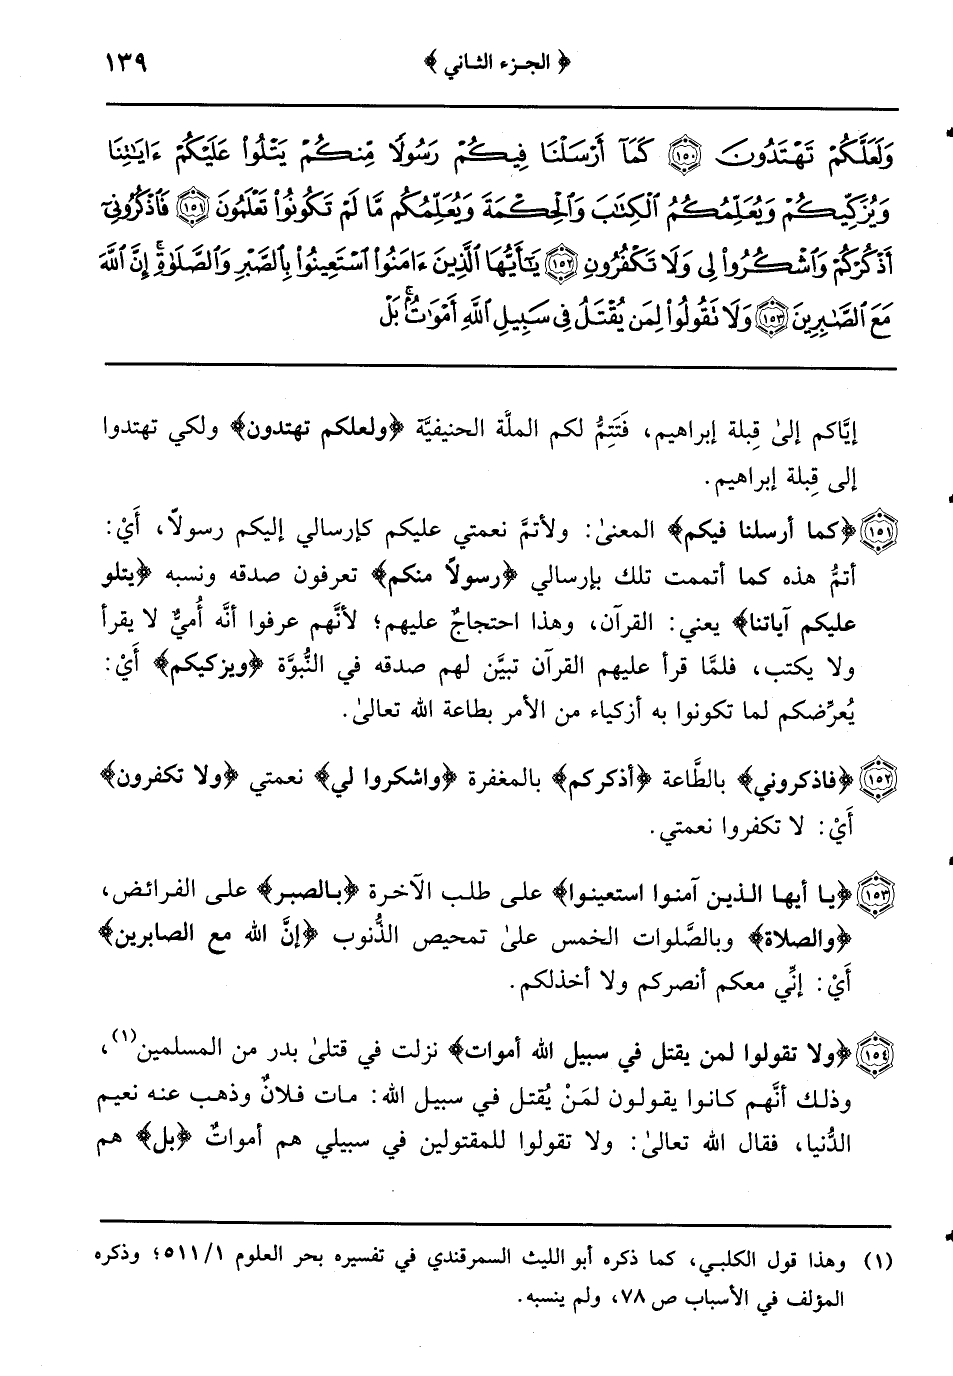 ﴿ الجزء الثاني ﴾ ١٣٩
وَلَعَلَّكُمْ تَهْتَدُونَ ١٥٠ كَمَآ أَرْسَلْنَا فِيكُمْ رَسُولًا مِّنكُمْ يَتْلُوا۟ عَلَيْكُمْ ءَايَـٰتِنَا
وَيُزَكِّيكُمْ وَيُعَلِّمُكُمُ ٱلْكِتَـٰبَ وَٱلْحِكْمَةَ وَيُعَلِّمُكُم مَّا لَمْ تَكُونُوا۟ تَعْلَمُونَ ١٥١ فَٱذْكُرُونِىٓ
أَذْكُرْكُمْ وَٱشْكُرُوا۟ لِى وَلَا تَكْفُرُونِ ١٥٢ يَـٰٓأَيُّهَا ٱلَّذِينَ ءَامَنُوا۟ ٱسْتَعِينُوا۟ بِٱلصَّبْرِ وَٱلصَّلَوٰةِ ۚ إِنَّ ٱللَّهَ
مَعَ ٱلصَّـٰبِرِينَ ١٥٣ وَلَا تَقُولُوا۟ لِمَن يُقْتَلُ فِى سَبِيلِ ٱللَّهِ أَمْوَٰتٌۢ ۚ بَلْ
إيَّاكم إلىٰ قِبلة إبراهيم، فَتَتِمُّ لكم الملَّة الحنيفيَّة ﴿ولعلكم تهتدون﴾ ولكي تهتدوا
إلى قِبلة إبراهيم.
١٥١ ﴿كما أرسلنا فيكم﴾ المعنىٰ: ولأتمَّ نعمتي عليكم كإرسالي إليكم رسولاً، أَيْ:
أتمُّ هذه كما أتممت تلك بإرسالي ﴿رسولاً منكم﴾ تعرفون صدقه ونسبه ﴿يتلو
عليكم آياتنا﴾ يعني: القرآن، وهذا احتجاجٌ عليهم؛ لأنَّهم عرفوا أنَّه أُميٌّ لا يقرأ
ولا يكتب، فلمَّا قرأ عليهم القرآن تبيَّن لهم صدقه في النُّبوَّة ﴿ويزكيكم﴾ أَيْ:
يُعرِّضكم لما تكونوا به أزكياء من الأمر بطاعة الله تعالىٰ.
١٥٢ ﴿فاذكروني﴾ بالطَّاعة ﴿أذكركم﴾ بالمغفرة ﴿واشكروا لي﴾ نعمتي ﴿ولا تكفرون﴾
أَيْ: لا تكفروا نعمتي.
١٥٣ ﴿يا أيها الذين آمنوا استعينوا﴾ على طلب الآخرة ﴿بالصبر﴾ على الفرائض،
﴿والصلاة﴾ وبالصَّلوات الخمس علىٰ تمحيص الذُّنوب ﴿إنَّ الله مع الصابرين﴾
أَيْ: إنِّي معكم أنصركم ولا أخذلكم.
١٥٤ ﴿ولا تقولوا لمن يقتل في سبيل الله أموات﴾ نزلت في قتلىٰ بدر من المسلمين(١)،
وذلك أنَّهم كانوا يقولون لمَنْ يُقتل في سبيل الله: مات فلانٌ وذهب عنه نعيم
الدُّنيا، فقال الله تعالىٰ: ولا تقولوا للمقتولين في سبيلي هم أمواتٌ ﴿بل﴾ هم
(١) وهذا قول الكلبي، كما ذكره أبو الليث السمرقندي في تفسيره بحر العلوم ١/ ٥١١؛ وذكره
المؤلف في الأسباب ص ٧٨، ولم ينسبه.